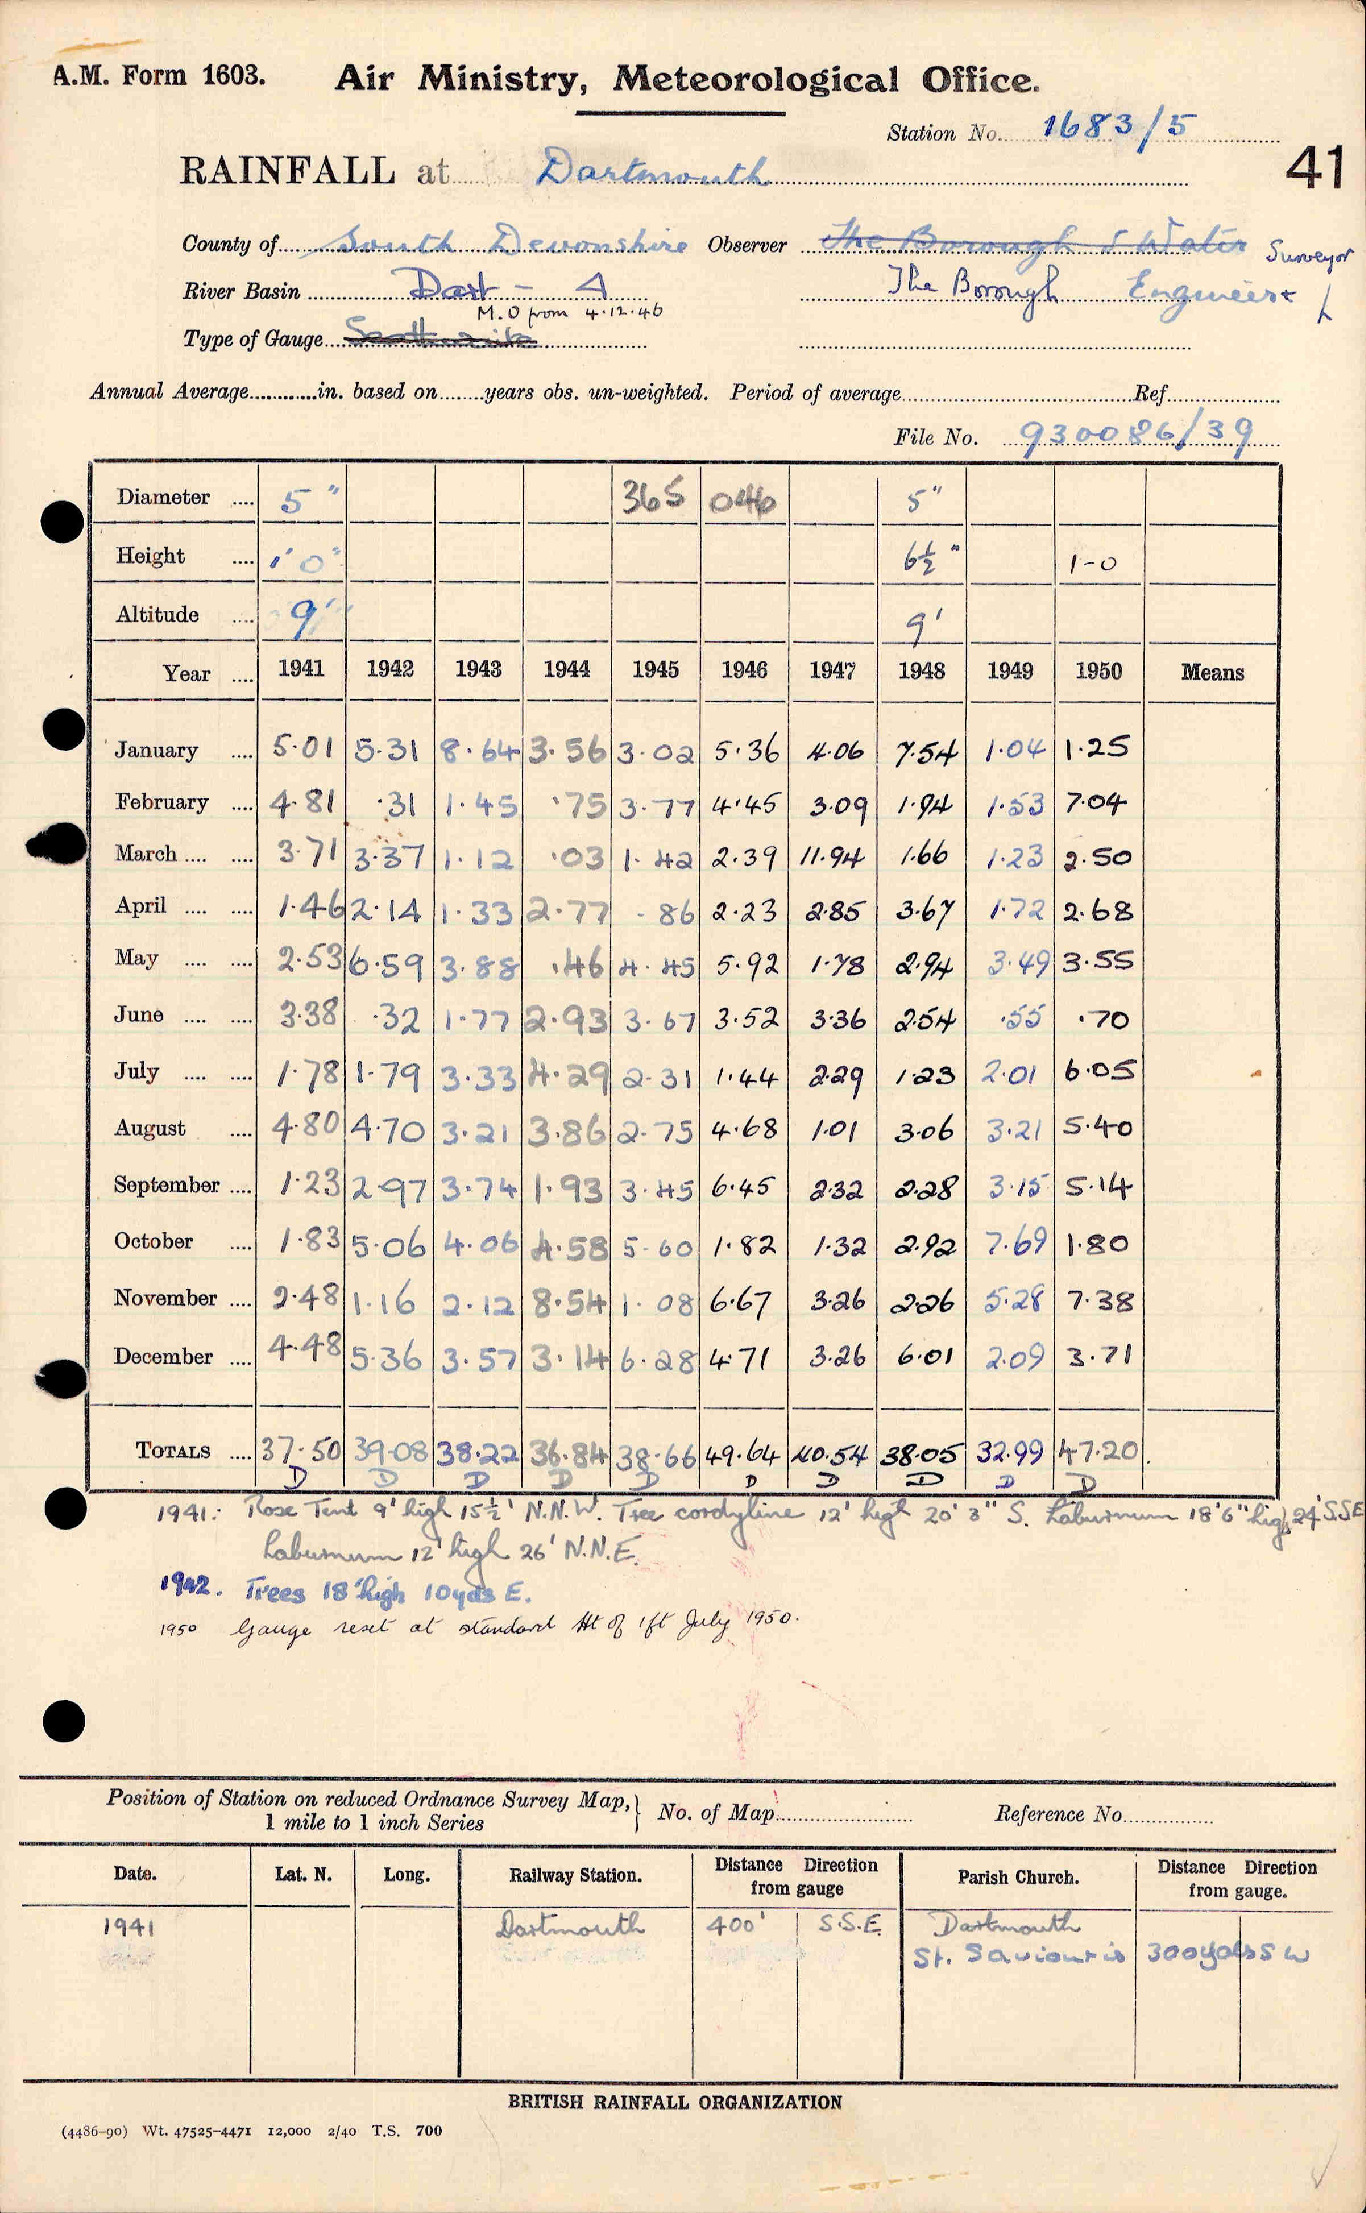 A.M. Form 1603. Air Ministry, Meteorological Office.
Station No. 1683/5
RAINFALL at Dartmouth 41
County of South Devonshire Observer The Borough & Water Surveyor
River Basin Dart - A The Borough Engineer &
M.O from 4.12.46
Type of Gauge
Annual Average............in. based on........years obs. un-weighted. Period of average Ref.
File No. 930086/39
Diameter .... 5" 365 046 5"
Height .... 1' 0" 6½" 1-0
Altitude .... 9' 9'
Year .... 1941 1942 1943 1944 1945 1946 1947 1948 1949 1950 Means
January .... 5.01 5.31 8.64 3.56 3.02 5.36 4.06 7.54 1.04 1.25
February .... 4.81 .31 1.45 .75 3.77 4.45 3.09 1.94 1.53 7.04
March .... .... 3.71 3.37 1.12 .03 1.42 2.39 11.94 1.66 1.23 2.50
April .... .... 1.46 2.14 1.33 2.77 .86 2.23 2.85 3.67 1.72 2.68
May .... .... 2.53 6.59 3.88 .46 4.45 5.92 1.78 2.94 3.49 3.55
June .... .... 3.38 .32 1.77 2.93 3.67 3.52 3.36 2.54 .55 .70
July .... .... 1.78 1.79 3.33 4.29 2.31 1.44 2.29 1.23 2.01 6.05
August .... 4.80 4.70 3.21 3.86 2.75 4.68 1.01 3.06 3.21 5.40
September .... 1.23 2.97 3.74 1.93 3.45 6.45 2.32 2.28 3.15 5.14
October .... 1.83 5.06 4.06 4.58 5.60 1.82 1.32 2.92 7.69 1.80
November .... 2.48 1.16 2.12 8.54 1.08 6.67 3.26 2.26 5.28 7.38
December .... 4.48 5.36 3.57 3.14 6.28 4.71 3.26 6.01 2.09 3.71
TOTALS .... 37.50 39.08 38.22 36.84 38.66 49.64 40.54 38.05 32.99 47.20
D D D D D D D D D D
1941: Rose Tent 9' high 15½' N.N.W. Tree cordyline 12' high 20' 3" S. Laburnum 18'6" high 24' S.S.E
Laburnum 12' high 26' N.N.E.
1942. Trees 18' high 10yds E.
1950 Gauge reset at standard Ht of 1ft July 1950.
Position of Station on reduced Ordnance Survey Map, 1 mile to 1 inch Series } No. of Map Reference No.
Date. Lat. N. Long. Railway Station. Distance Direction from gauge Parish Church. Distance Direction from gauge.
1941 Dartmouth 400' S.S.E. Dartmouth
St. Saviour's 300yds SW
BRITISH RAINFALL ORGANIZATION
(4486-90) Wt. 47525-4471 12,000 2/40 T.S. 700